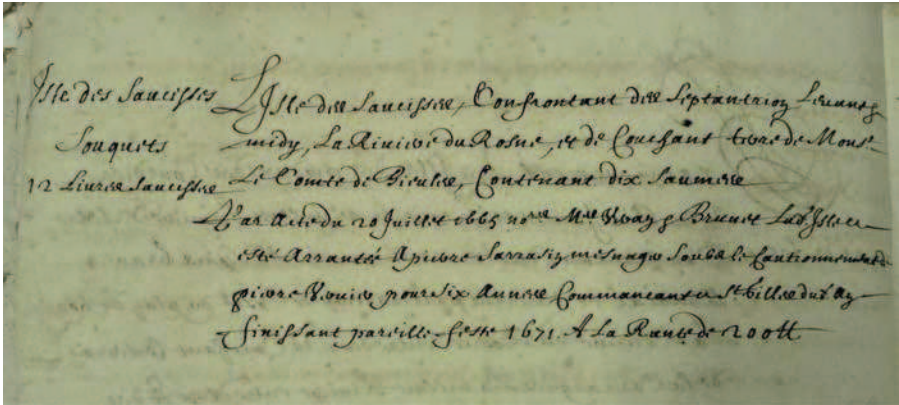 Isle des Saucisses
Souquets
12 Livres Saucisses
L'Isle des Saucisses, Confrontant des Septantrion Levant
midy, La Riviere du Rosne, et de Couchant terre de Mons.r
Le Comte de Bieules, Contenant dix Saumees
Par Acte du 20 Juillet 1665 no.re M.re Brunet Lad. Isle a
esté Arrantée A pierre Sarrasin mesnager Soubs le Cautionnement de
pierre pour Six Années Commancant a S.t Gilles dud. an
finissant pareille feste 1671. A La Rante de 200tt